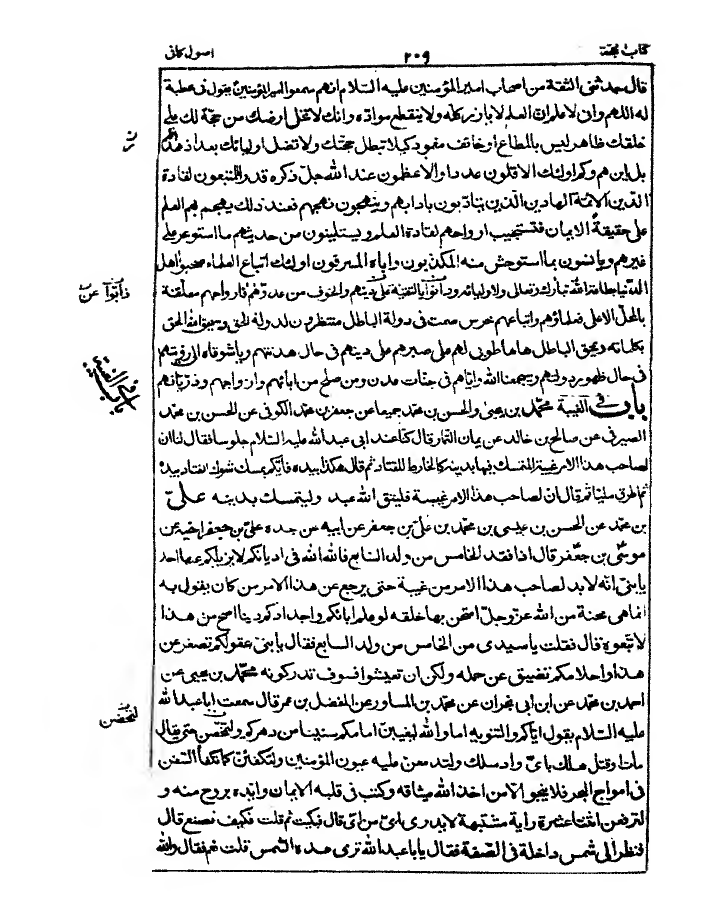 كتاب الحجّة
٢٠٩
اصول كافى
قال حدثنى الثقة من اصحاب امير المؤمنين عليه السلام انهم سمعوا امير المؤمنين يقول فى خطبة
له اللهم وانى لاعلم ان العلم لا يأزر كله ولا ينقطع موادّه وانك لا تخلى ارضك من حجّة لك على
خلقك ظاهر ليس بالمطاع او خائف مغمود كيلا تبطل حجتك ولا تضل اولياؤك بعد اذ هديتهم
بل اين هم وكم اولئك الاقلون عددا والاعظمون عند الله جلّ ذكره قدرا المتبعون لقادة
الدّين الائمّة الهادين الّذين يتادّبون بادابهم وينهجون نهجهم فعند ذلك يهجم بهم العلم
على حقيقة الايمان فتستجيب ارواحهم لقادة العلم ويستلينون من حديثهم ما استوعر على
غيرهم ويأنسون بما استوحش منه المكذّبون واباه المسرفون اولئك اتباع العلماء صحبوا اهل
الدّنيا بطاعة الله تبارك وتعالى ولاوليائه ودانوا بالتقيّة على دينهم والخوف من عدوّهم فارواحهم معلّقة
بالمحلّ الاعلى فعلماؤهم واتباعهم خرس صمت فى دولة الباطل منتظرون لدولة الحقّ وسيحقّ الله الحقّ
بكلماته ويمحق الباطل ها ها طوبى لهم على صبرهم على دينهم فى حال هدنتهم ويا شوقاه الى رؤيتهم
فى حال ظهور دولتهم وسيجمعنا الله وايّاهم فى جنّات عدن ومن صلح من ابائهم وازواجهم وذرّيّاتهم
باب فى الغيبة محمّد بن يحيى والحسن بن محمّد جميعا عن جعفر بن محمّد الكوفى عن الحسن بن محمّد
الصيرفى عن صالح بن خالد عن يمان التمّار قال كنّا عند ابى عبد الله عليه السلام جلوسا فقال لنا ان
لصاحب هذا الامر غيبة المتمسك فيها بدينه كالخارط للقتاد ثم قال هكذا بيده فايّكم يمسك شوك القتاد بيده
ثم اطرق مليّا ثم قال ان لصاحب هذا الامر غيبة فليتق الله عبد وليتمسك بدينه علىّ
بن محمّد عن الحسن بن عيسى بن محمّد بن علىّ بن جعفر عن ابيه عن جدّه علىّ بن جعفر عن اخيه
موسى بن جعفر قال اذا فقد الخامس من ولد السابع فالله الله فى اديانكم لا يزيلكم عنها احد
يا بنىّ انّه لا بد لصاحب هذا الامر من غيبة حتى يرجع عن هذا الامر من كان يقول به
انما هى محنة من الله عزّ وجلّ امتحن بها خلقه لو علم اباؤكم واجدادكم دينا اصحّ من هذا
لاتّبعوه قال فقلت يا سيدى من الخامس من ولد السابع فقال يا بنىّ عقولكم تصغر عن
هذا واحلامكم تضيق عن حمله ولكن ان تعيشوا فسوف تدركونه محمّد بن يحيى عن
احمد بن محمّد عن ابن ابى نجران عن محمّد بن المساور عن المفضل بن عمر قال سمعت ابا عبد الله
عليه السلام يقول ايّاكم والتنويه اما والله ليغيبنّ امامكم سنينا من دهركم ولتمحّصنّ حتى يقال
مات او قتل هلك باىّ واد سلك ولتدمعنّ عليه عيون المؤمنين ولتكفأنّ كما تكفأ السّفن
فى امواج البحر فلا ينجو الا من اخذ الله ميثاقه وكتب فى قلبه الايمان وايّده بروح منه و
لترفعنّ اثنتا عشرة راية مشتبهة لا يدرى اىّ من اىّ قال فبكيت ثم قلت فكيف نصنع قال
فنظر الى شمس داخلة فى الصّفّة فقال يا با عبد الله ترى هذه الشّمس قلت نعم فقال والله
ودانوا عن
باب فى الغيبة
لتمحّصن